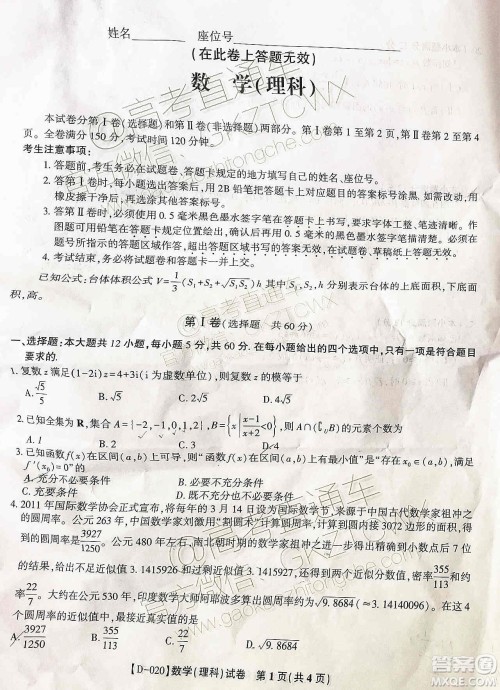 姓名________ 座位号________
(在此卷上答题无效)
数 学(理科)
本试卷分第Ⅰ卷(选择题)和第Ⅱ卷(非选择题)两部分。第Ⅰ卷第1至第2页,第Ⅱ卷第2至第4
页。全卷满分150分,考试时间120分钟。
考生注意事项:
1. 答题前,考生务必在试题卷、答题卡规定的地方填写自己的姓名、座位号。
2. 答第Ⅰ卷时,每小题选出答案后,用2B铅笔把答题卡上对应题目的答案标号涂黑。如需改动,用
橡皮擦干净后,再选涂其他答案标号。
3. 答第Ⅱ卷时,必须使用0.5毫米黑色墨水签字笔在答题卡上书写,要求字体工整、笔迹清晰。作
图题可先用铅笔在答题卡规定的位置绘出,确认后再用0.5毫米的黑色墨水签字笔描清楚。必
须在题号所指示的答题区域作答,超出答题区域书写的答案无效,在试题卷、草稿纸上答题无效。
4. 考试结束,务必将试题卷和答题卡一并上交。
已知公式:台体体积公式V=1/3(S₁+S₂+√S₁S₂)h 其中S₁,S₂,h分别表示台体的上底面积,下底面
积,高。
第Ⅰ卷(选择题 共60分)
一、选择题:本大题共12小题,每小题5分,共60分.在每小题给出的四个选项中,只有一项是符合题目
要求的.
1. 复数z满足(1-2i)z=4+3i(i为虚数单位),则复数z的模等于
A. √5/5 B. √5 C. 2√5 D. 4√5
2. 已知全集为R,集合A={-2,-1,0,1,2},B={x|(x-1)/(x+2)<0},则A∩(∁UB)的元素个数为
A. 1 B. 2 C. 3 D. 4
3. 已知函数f(x)在区间(a,b)上可导,则“函数f(x)在区间(a,b)上有最小值”是“存在x₀∈(a,b),满足
f′(x₀)=0”的
A. 充分不必要条件 B. 必要不充分条件
C. 充要条件 D. 既不充分也不必要条件
4. 2011年国际数学协会正式宣布,将每年的3月14日设为国际数学节,来源于中国古代数学家祖冲之
的圆周率。公元263年,中国数学家刘徽用“割圆术”计算圆周率,计算到圆内接3072边形的面积,得
到的圆周率是3927/1250。公元480年左右,南北朝时期的数学家祖冲之进一步得出精确到小数点后7位
的结果,给出不足近似值3.1415926和过剩近似值3.1415927,还得到两个近似分数值,密率355/113和约
率22/7。大约在公元530年,印度数学大师阿耶波多算出圆周率约为√9.8684(≈3.1414098)。在这
4个圆周率的近似值中,最接近真实值的是
A. 3927/1250 B. 355/113 C. 22/7 D. √9.8684
【D-020】数学(理科)试卷 第1页(共4页)
@高考直通车